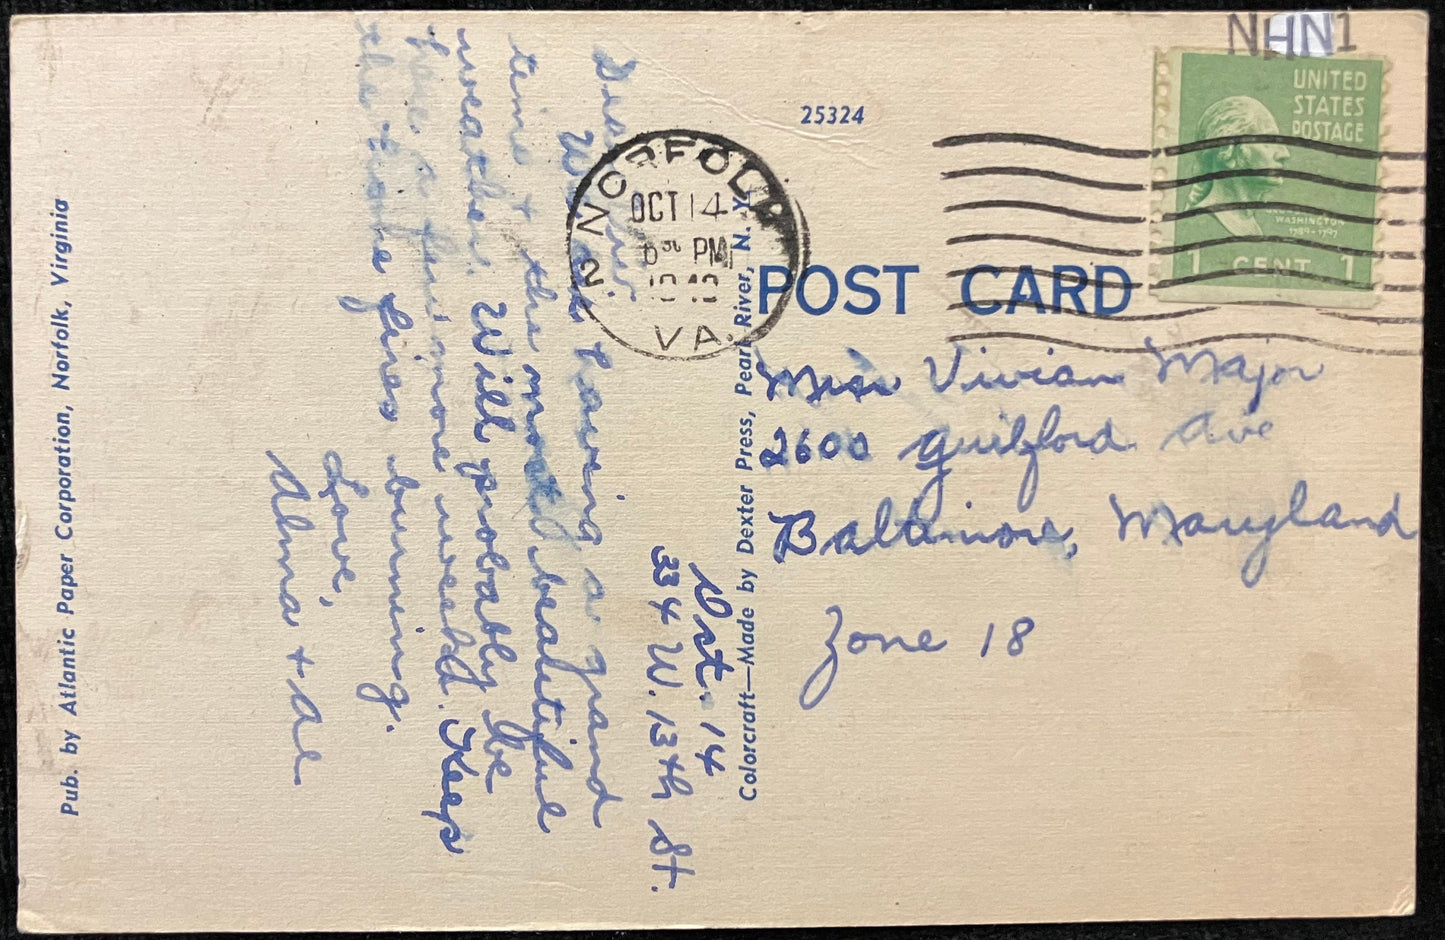 NHN1
UNITED
STATES
POSTAGE
WASHINGTON
1789-1797
1 CENT 1
25324
NORFOLK
OCT 14
PM
VA.
2
POST CARD
Miss Vivian Major
2600 Guilford Ave
Baltimore, Maryland
Zone 18
Colorcraft—Made by Dexter Press, Pearl River, N. Y.
Oct. 14
334 W. 13th St.
We are having a grand
time & the most beautiful
weather. Will probably be
here a few more weeks. Keep
the home fires burning.
Love,
Alma & Al
Pub. by Atlantic Paper Corporation, Norfolk, Virginia